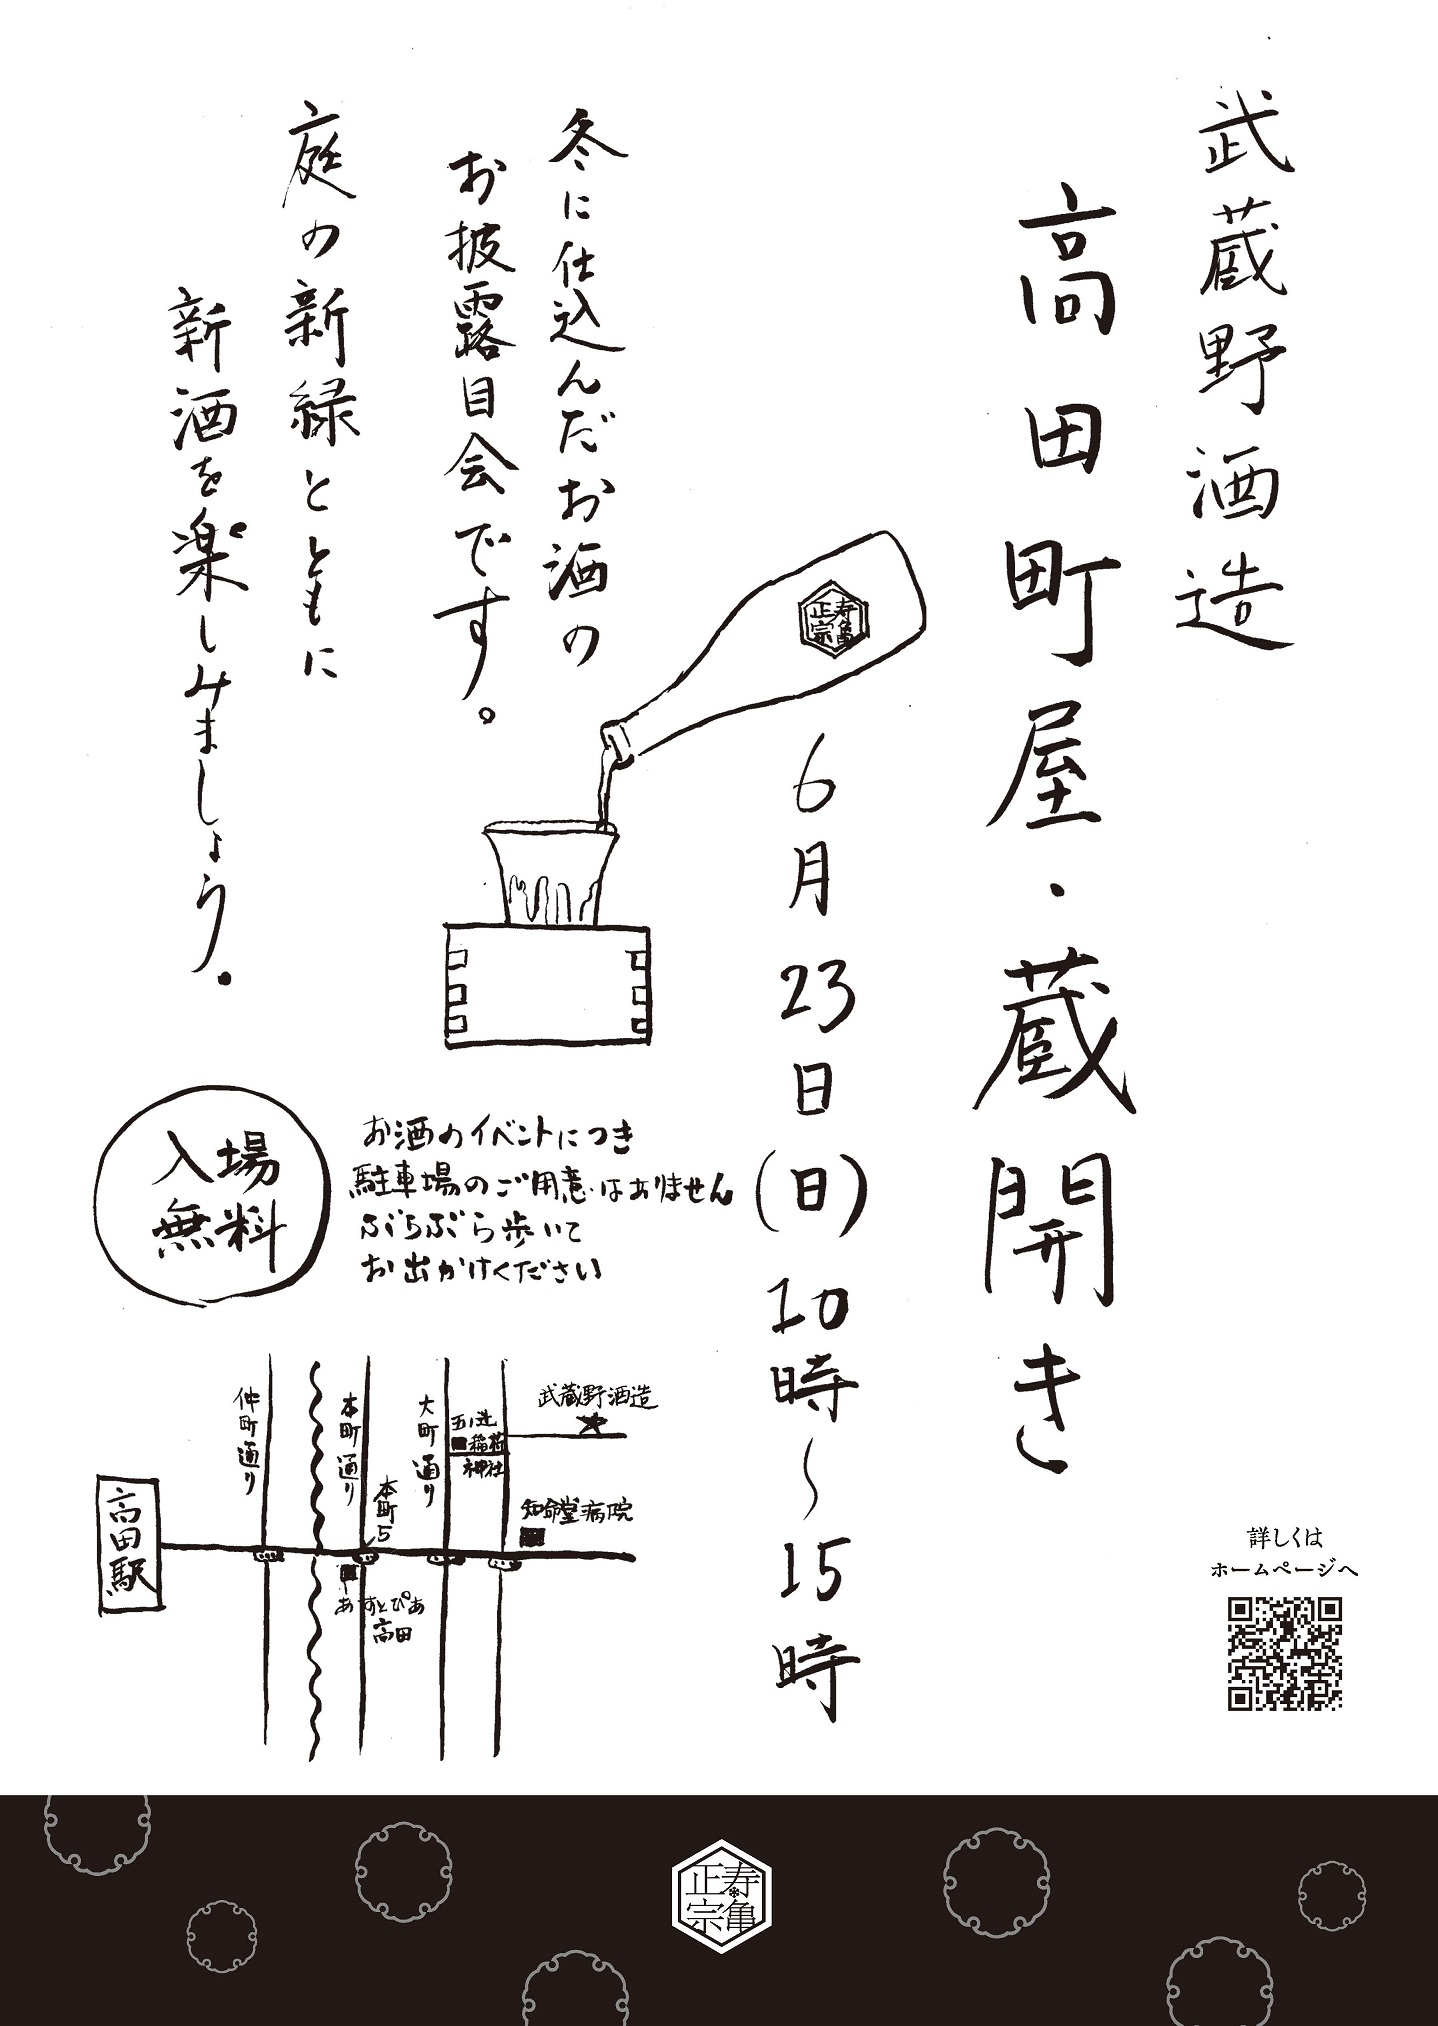 武蔵野酒造
高田町屋・蔵開き
6月23日(日)10時〜15時
冬に仕込んだお酒の
お披露目会です。
庭の新緑とともに
新酒を楽しみましょう。
寿亀
正宗
入場
無料
お酒のイベントにつき
駐車場のご用意はありません
ぶらぶら歩いて
お出かけください
武蔵野酒造
稲荷
神社
大町通り
本町通り
仲町通り
本町5
知命堂病院
高田駅
あすとぴあ
高田
詳しくは
ホームページへ
寿亀
正宗